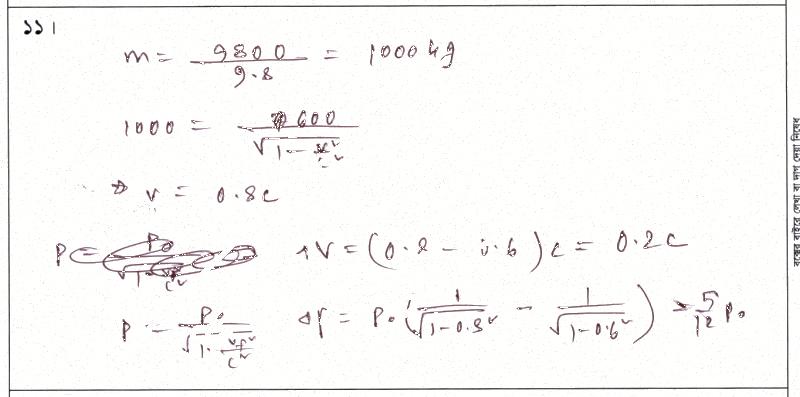 ১১।
m = 9800 / 9.8 = 1000 kg
1000 = 600 / √(1 - v²/c²)
⇒ v = 0.8c
P = ΔV = (0.8 - 0.6)c = 0.2c
P = P₀ / √(1 - v²/c²) ΔP = P₀ (1/√(1-0.8²) - 1/√(1-0.6²)) = 5/12 P₀
বক্সের বাইরে লেখা বা দাগ দেয়া নিষেধ